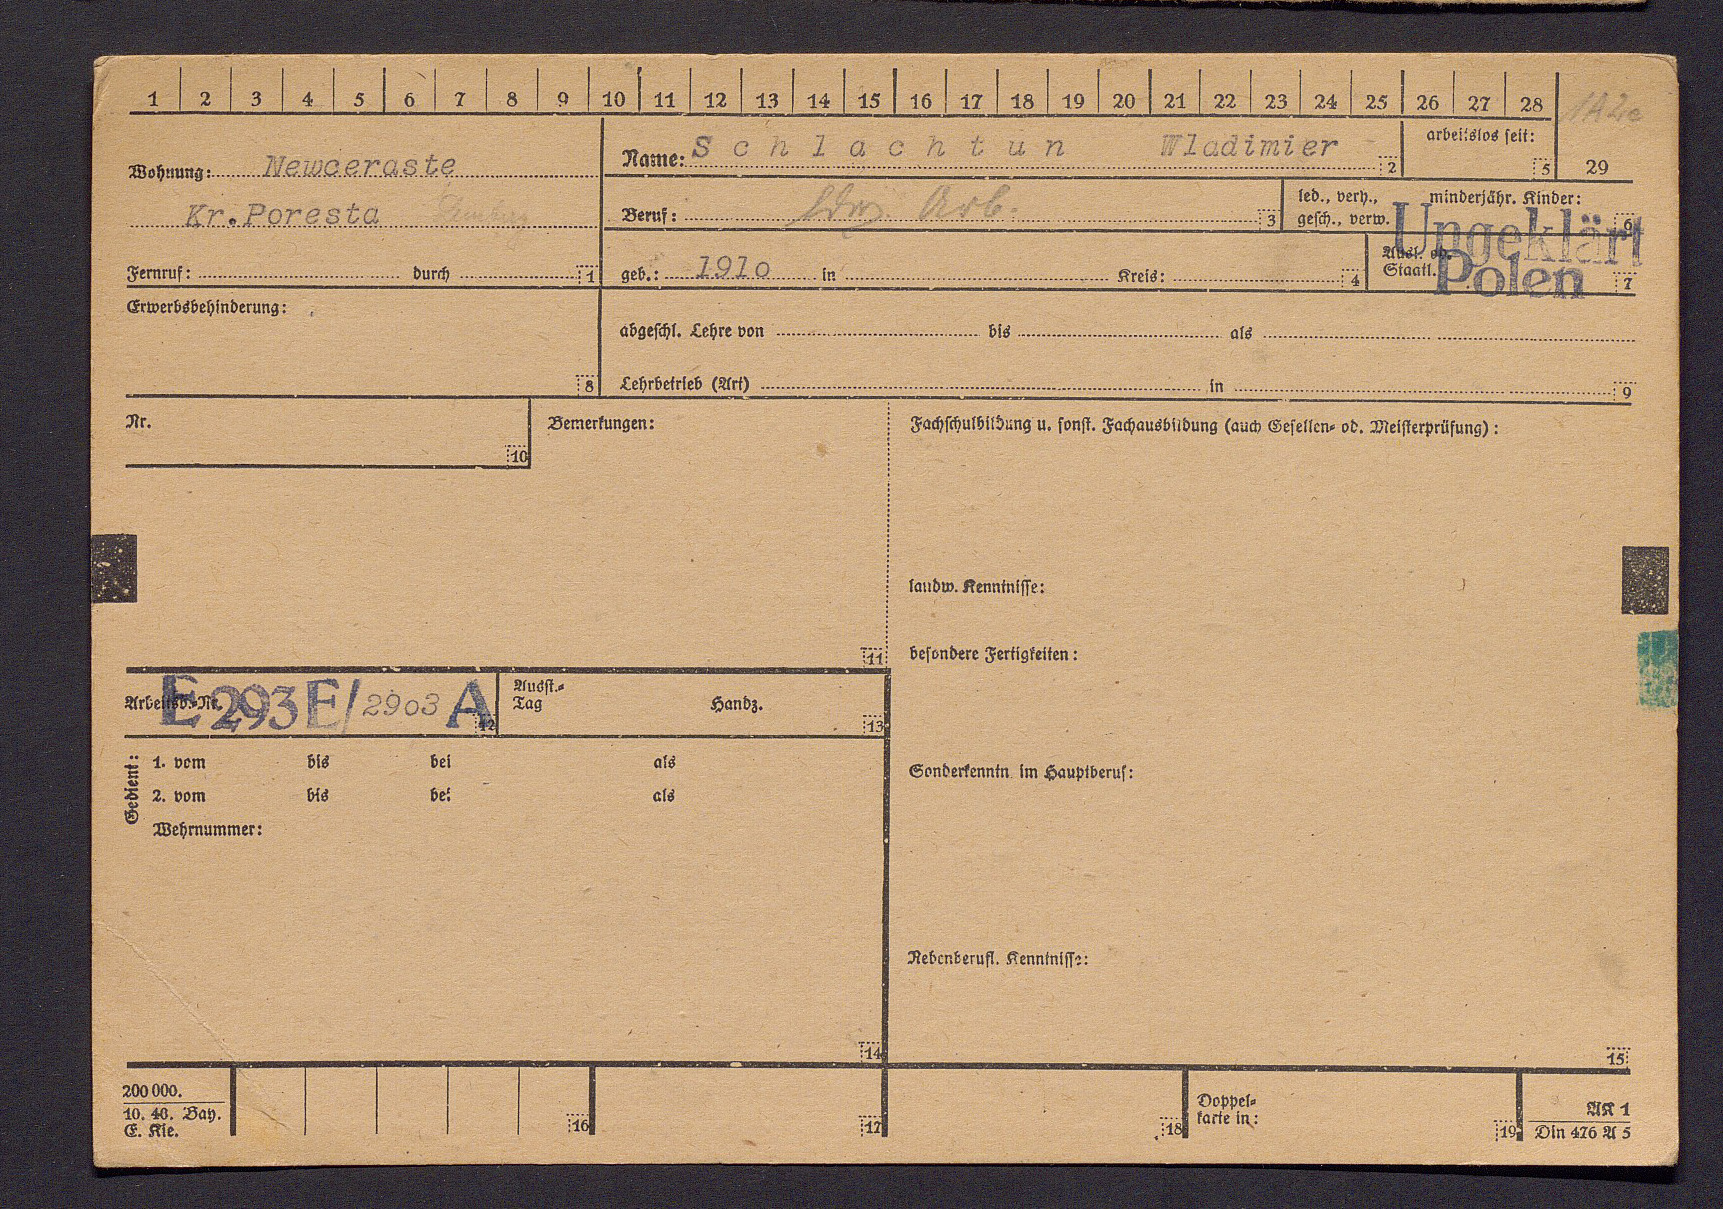 1 2 3 4 5 6 7 8 9 10 11 12 13 14 15 16 17 18 19 20 21 22 23 24 25 26 27 28 1A2c
Wohnung: Newceraste
Kr.Poresta
Fernruf: durch 1
Name: Schlachtun Wladimier 2
arbeitslos seit: 5
29
Beruf: ldw. Arb. 3
led., verh., gesch., verw.
minderjähr. Kinder: 6
geb.: 1910 in Kreis: 4
Ausl. od. Staatl. 7
Ungeklärt
Polen
Erwerbsbehinderung: 8
abgeschl. Lehre von bis als
Lehrbetrieb (Art) in 9
Nr. 10
Bemerkungen: 11
Fachschulbildung u. sonst. Fachausbildung (auch Gesellen- od. Meisterprüfung):
landw. Kenntnisse:
besondere Fertigkeiten:
Arbeitsb.-Nr. E 293 E/2903 A 12
Ausst.-Tag Handz. 13
Gedient:
1. vom bis bei als
2. vom bis bei als
Wehrnummer:
14
Sonderkenntn. im Hauptberuf:
Nebenberufl. Kenntnisse:
15
200 000.
10. 40. Bay.
E. Kle.
16
17
18
Doppel-
karte in:
19
AK 1
Din 476 A 5